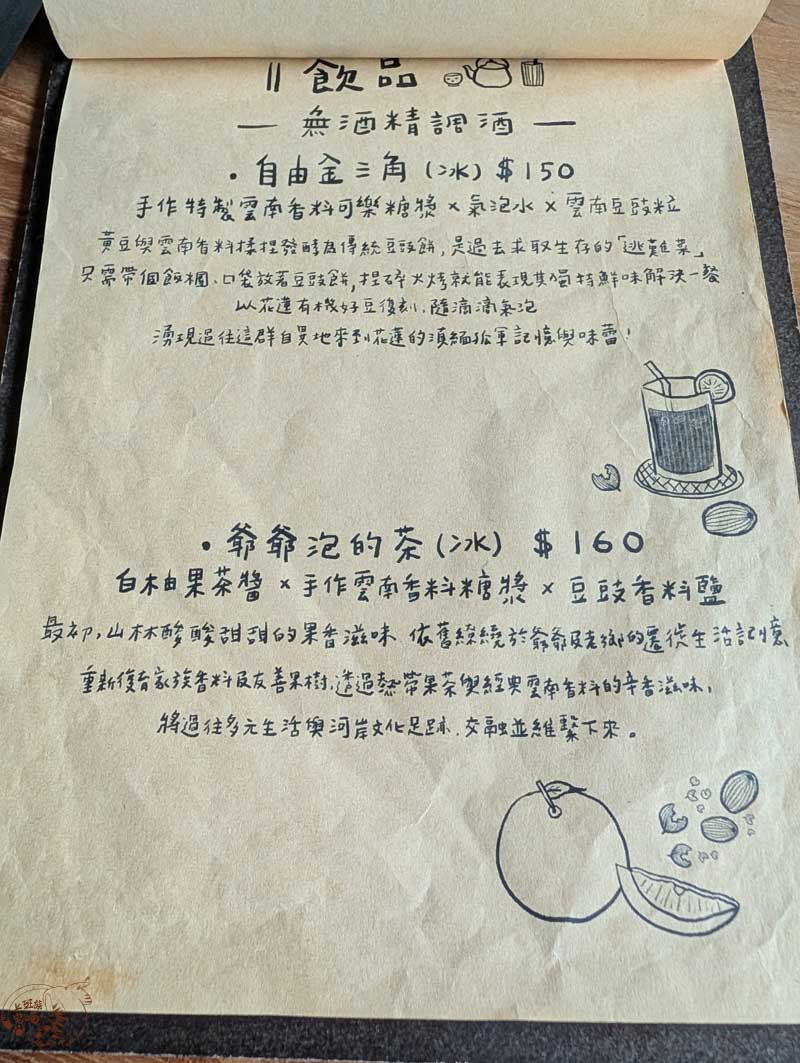 飲品
— 無酒精調酒 —
・自由金三角(冰) $150
手作特製雲南香料可樂糖漿 × 氣泡水 × 雲南豆豉粒
黃豆與雲南香料揉捏發酵為傳統豆豉餅，是過去求取生存的「逃難菜」
只需帶個飯糰、口袋放著豆豉餅，捏碎火烤就能表現其獨特鮮味解決一餐
以花蓮有機好豆復刻，隨滴滴氣泡
湧現過往這群自異地來到花蓮的滇緬孤軍記憶與味蕾！
・爺爺泡的茶(冰) $160
白柚果茶醬 × 手作雲南香料糖漿 × 豆豉香料鹽
最初，山林酸酸甜甜的果香滋味 依舊繚繞於爺爺及老鄉的遷徙生活記憶
重新復育家族香料及友善果樹，透過熱帶果茶與經典雲南香料的辛香滋味，
將過往多元生活與河岸文化足跡，交融並維繫下來。